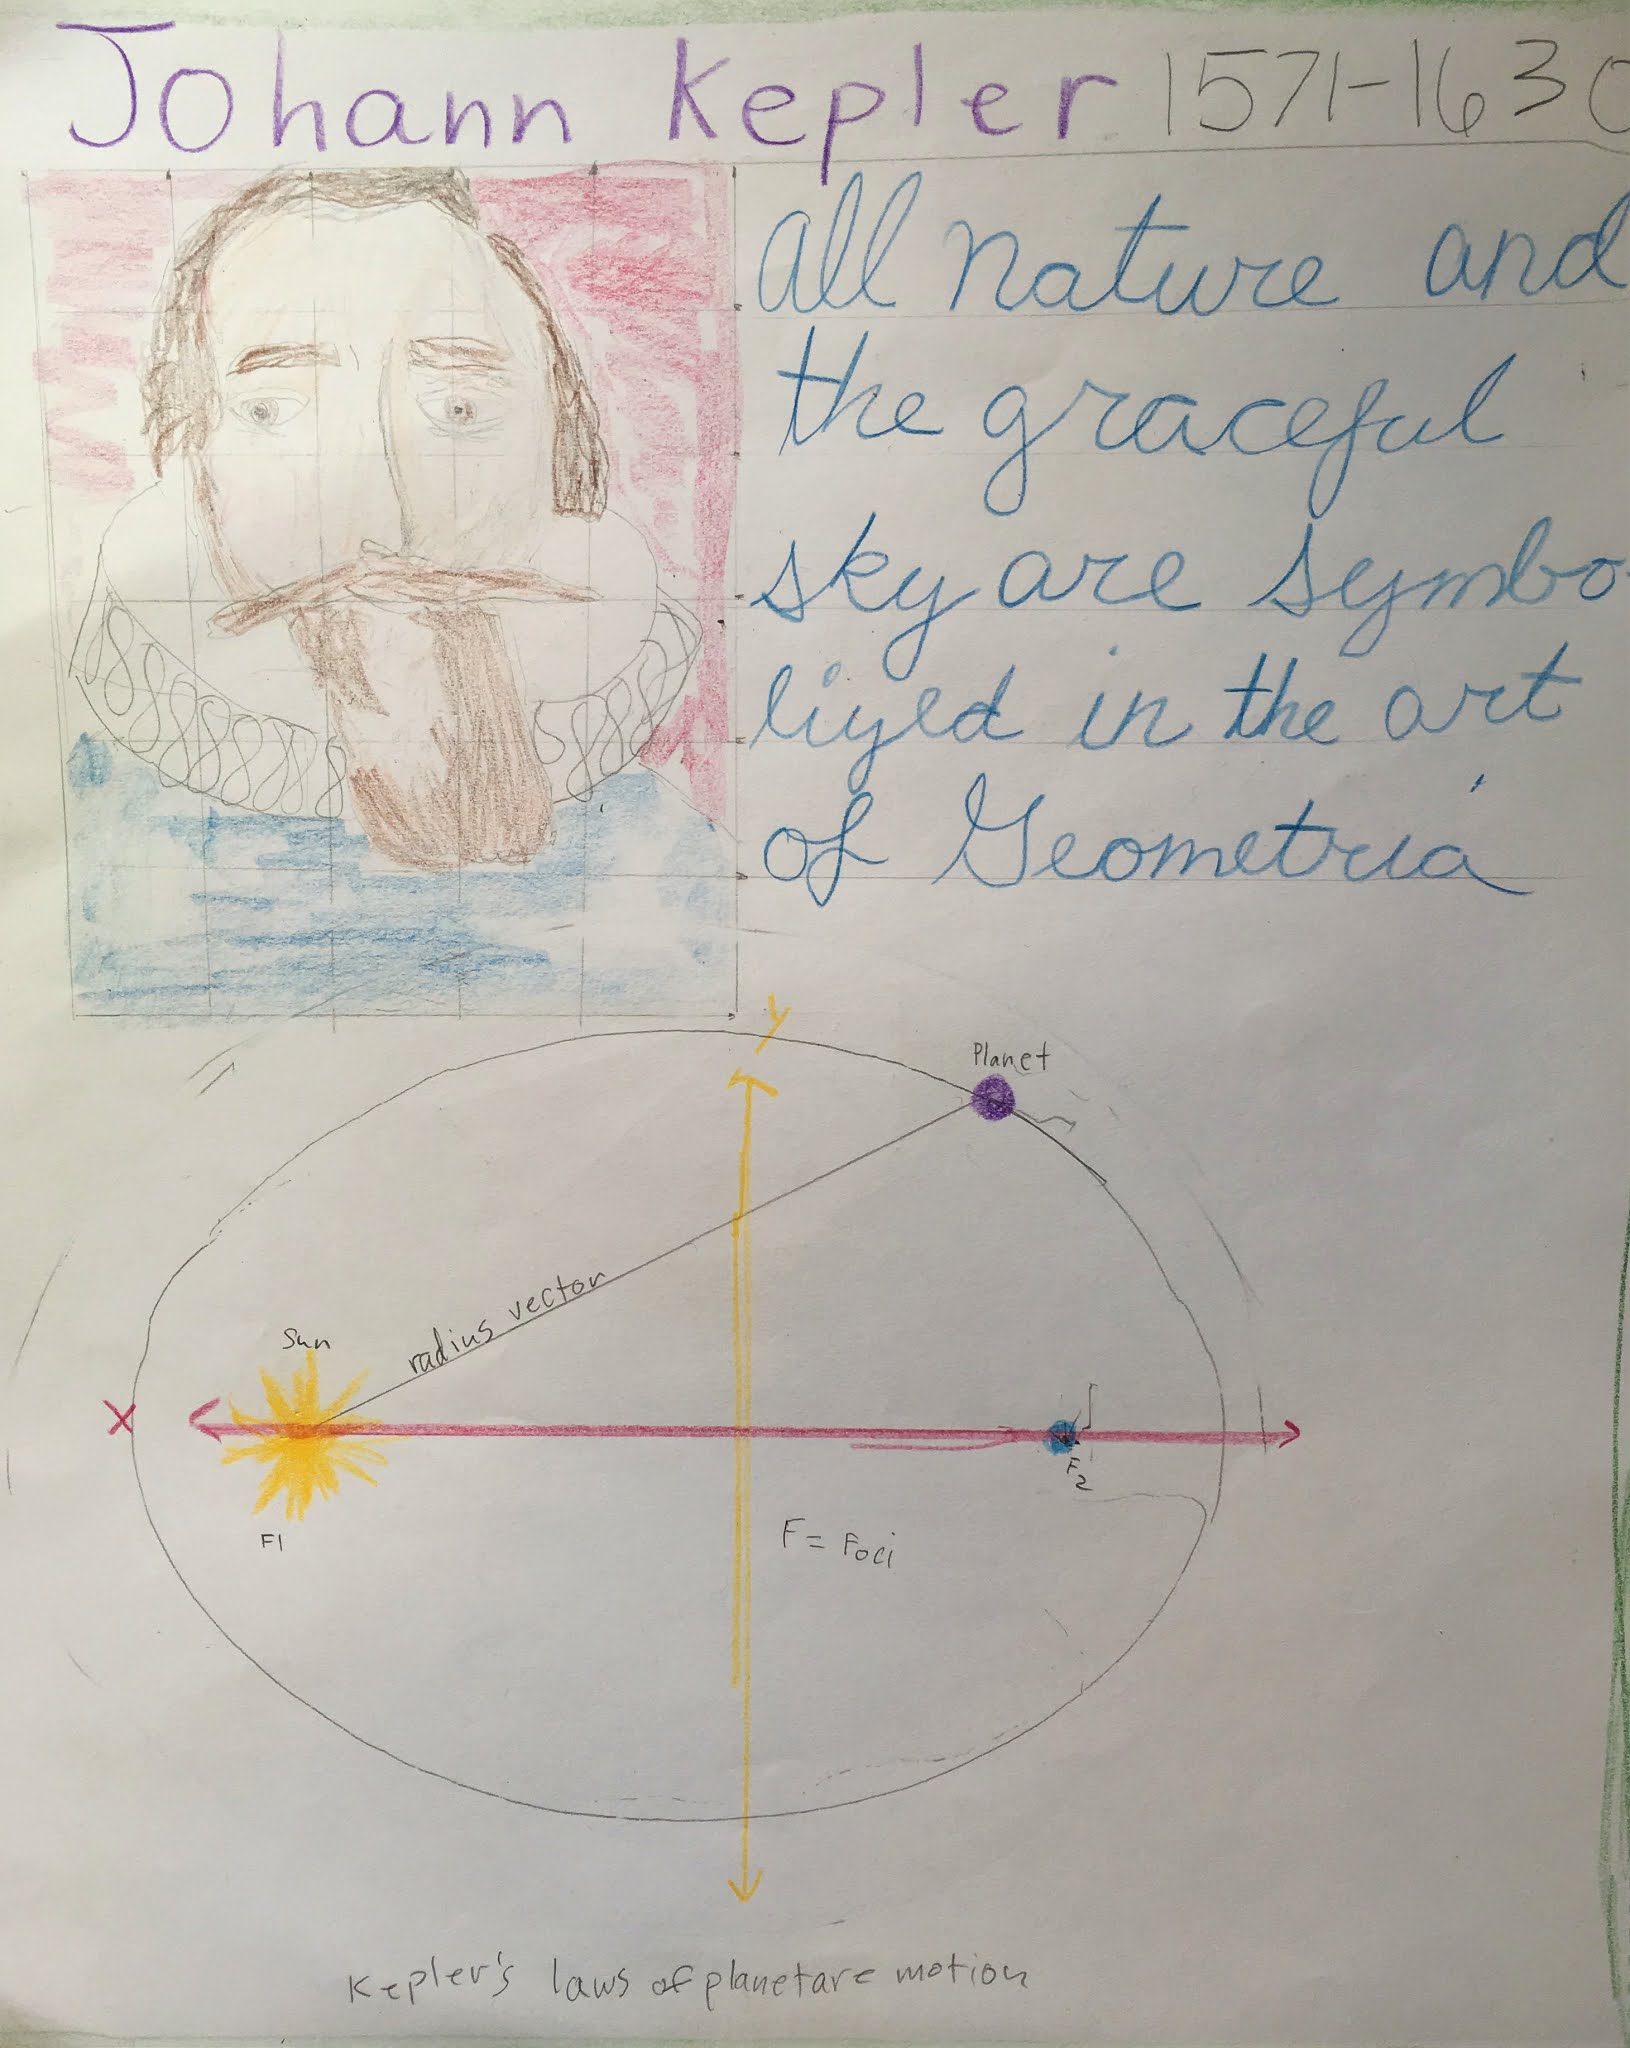 Johann Kepler 1571-1630
all nature and
the graceful
sky are symbo-
lized in the art
of Geometria
y
Planet
radius vector
Sun
X
F2
F1
F = Foci
Kepler's laws of planetare motion